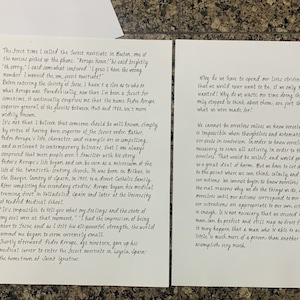 The first time I called the Jesuit novitiate in Boston, one
of the novices picked up the phone. "Arrupe House!" he said brightly.
"Oh sorry," I said somewhat confused. "I guess I have the wrong
number. I wanted the um, Jesuit novitiate."
Before entering the Society of Jesus, I hadn't a clue as to who or
what Arrupe was. Paradoxically, now that I'm been a Jesuit for
sometime, it continually surprises me that the name Pedro Arrupe
superior general of the Jesuits between 1965 and 1981, isn't more
widely known.
It's not that I believe that someone should be well known simply
by virtue of having been superior of the Jesuit order. Rather,
Pedro Arrupe's life, character, and example are so compelling,
and so relevant to contemporary believers, that I am always
surprised that more people aren't familiar with his story.
Pedro Arrupe's life began and can be seen as a microcosm of the
life of the twentieth-century church. He was born in Bilbao, in
the Basque Country of Spain, in 1907, to a devout Catholic family.
After completing his secondary studies, Arrupe began his medical
training first in Valladolid, Spain and later at the University
of Madrid Medical School.
"It's impossible to tell you what my feelings and the state of
my soul were at that moment, " "I had the impression of being
near to Jesus and as I felt his all-powerful strength, the world
around me began to seem extremely small.
Shortly afterward Pedro Arrupe, age nineteen, gave up his
medical career to enter the Jesuit novitiate in Loyola, Spain
the hometown of Saint Ignatius.
Why do we have to spend our lives striving
that we would never want to be, if we only knew
wanted? Why do we waste our time doing things
only stopped to think about them, are just the
what we were made for?
We cannot be ourselves unless we know ourselves
is impossible when thoughtless and automatic
our souls in confusion. In order to know ourselves
necessary to cease all activity in order to think
ourselves. That would be useless, and would
a great deal of harm. But we have to cut
to the point where we can think calmly and
our actions. We cannot begin to know ourselves
the real reasons why we do the things we do,
ourselves until our actions correspond to our
our intentions are appropriate to our own
is enough. It is not necessary that we succeed in
man can be perfect and still reap no fruit
it may happen that a man who is able to
little is much more of a person than another
accomplish very much.